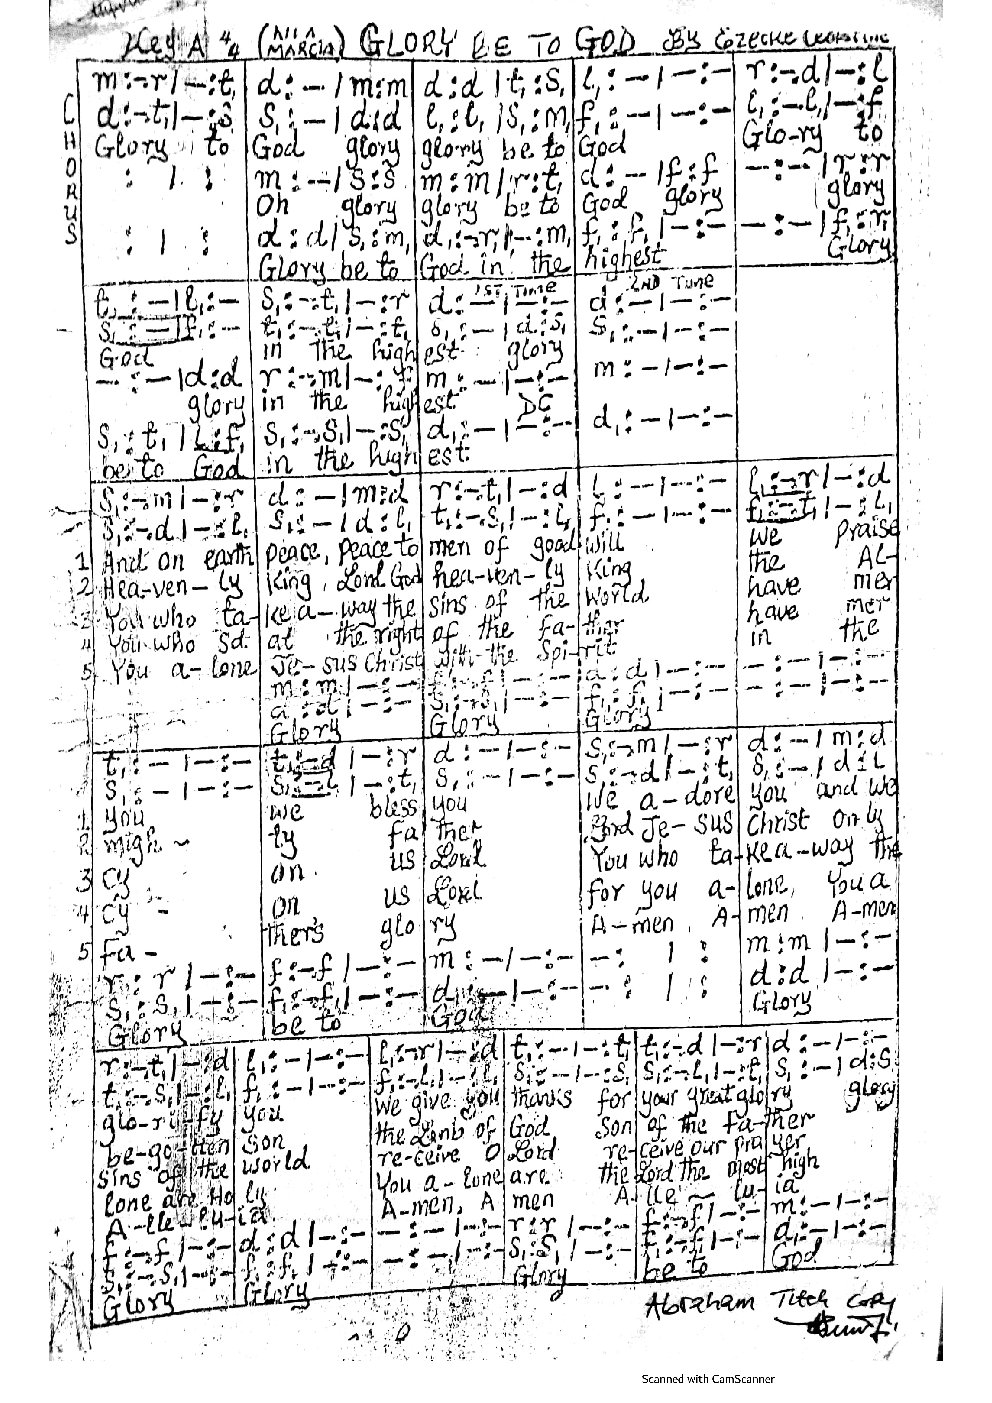 Key A 4/4 (ALLA MARCIA) GLORY BE TO GOD By EZECKE
CHORUS
m:-r|-:t, d:-|m:m d:d|t,:s, l,:-|-:- r:-d|-:l
d:-t,|-:s s,:-|d:d l,:l,|s,:m, f,:-|-:- l,:-l,|-:f
Glory to God glory glory be to God Glo-ry to
: | : m:--|s:s m:m|r:t, d:-|f:f -:-|r:r
Oh glory glory be to God glory glory
: | : d:d|s,:m, d,:-r,|-:m, f,:f,|-:- -:-|f,:r,
Glory be to God in the highest Glory
t,:-|l,:- s,:-t,|-:r d:-|-:- 1ST TIME d:-|-:- 2ND TUNE
s,:-|f,:- t,:-t,|-:t, s,:-|d:s, s,:-|-:-
God in the high est glory
-:-|d:d r:-m|-:f m:-|-:- m:-|-:-
glory in the high est DC
s,:t,|l,:f, s,:-s,|-:s, d,:-|-:- d,:-|-:-
be to God in the high est
s,:-m|-:r d:-|m:d r:-t,|-:d l,:-|-:- l,:-r|-:d
s,:-d|-:l, s,:-|d:l, t,:-s,|-:l, f,:-|-:- f,:-t,|-:l,
1 And on earth peace, peace to men of good will we praise
2 Hea-ven-ly King, Lord God hea-ven-ly King the AL-
3 You who ta- ke a-way the sins of the World have mer
4 You who sit at the right of the fa- ther have mer
5 You a-lone Je-sus Christ with the Spi-rit in the
m:m|-:- d:d|-:- -:-|-:-
f,:f,|-:- -:-|-:-
Glory Glory Glory
t,:-|-:- t,:-d|-:r d:-|-:- s,:-m|-:r d:-|m:d
s,:-|-:- s,:-l,|-:t, s,:-|-:- s,:-d|-:t, s,:-|d:l
1 you we bless you we a-dore you and we
2 migh- ty fa ther Lord Je-sus Christ only
3 cy on us Lord You who ta-ke a-way the
4 cy - on us Lord for you a- lone, You a
5 fa- thers glo ry A-men, A- men, A-men
r:r|-:- f:-f|-:- m:-|-:- -: | : m:m|-:-
s,:s,|-:- f,:-f,|-:- d,:-|-:- -: | : d:d|-:-
Glory be to God Glory
r:-t,|-:d l,:-|-:- l,:-r|-:d t,:-|-:t, t,:-d|-:r d:-|-:-
t,:-s,|-:l, f,:-|-:- f,:-l,|-:l, s,:-|-:s, s,:-l,|-:t, s,:-|d:s
glo-ri-fy you we give you thanks for your great glo ry glory
be-go-tten Son the Lamb of God Son of the fa-ther
sins of the World re-ceive O Lord re-ceive our pra yer
lone are Ho ly You a-lone are the Lord the most high
A-lle-lu-ia A-men, A men A-lle-lu-ia
f:-f|-:- d:d|-:- -:-|-:- r:r|-:- f:-f|-:- m:-|-:-
s,:-s,|-:- f,:f,|-:- -:-|-:- s,:s,|-:- f,:-f,|-:- d,:-|-:-
Glory Glory Glory be to God
Abraham Titch copy
Scanned with CamScanner